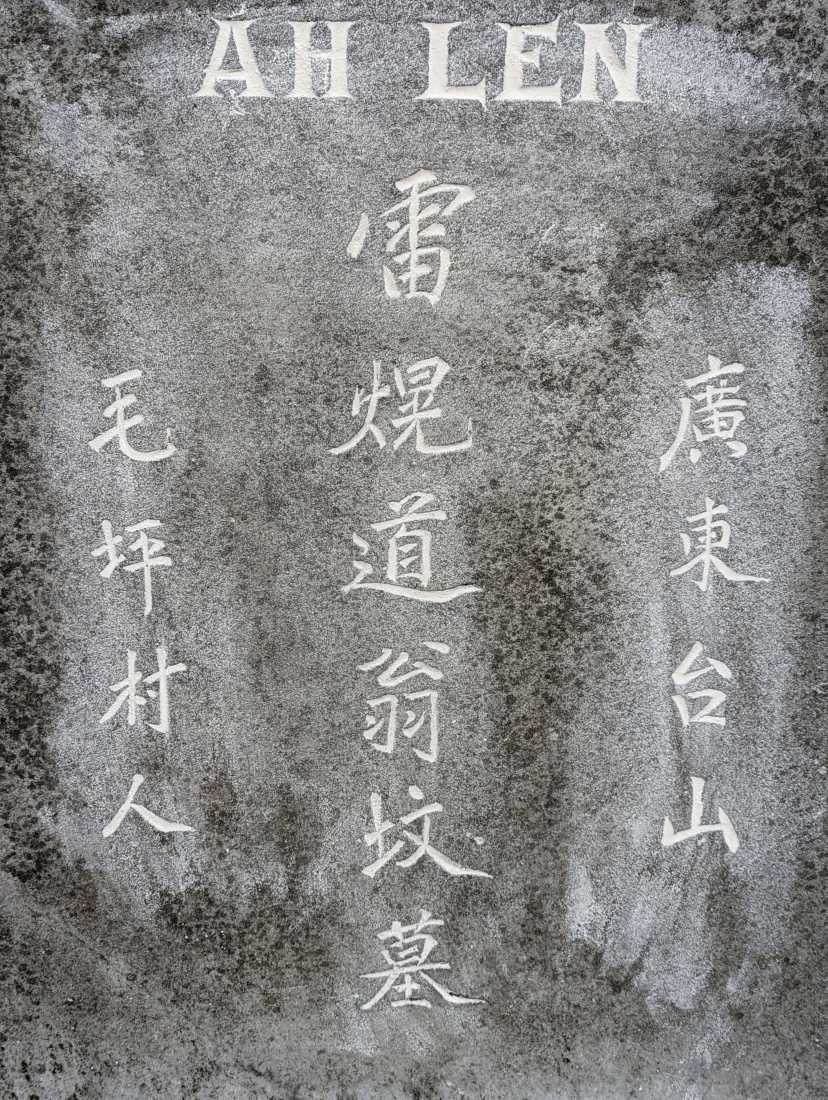 AH LEN
廣東台山
雷熀道翁坟墓
毛坪村人